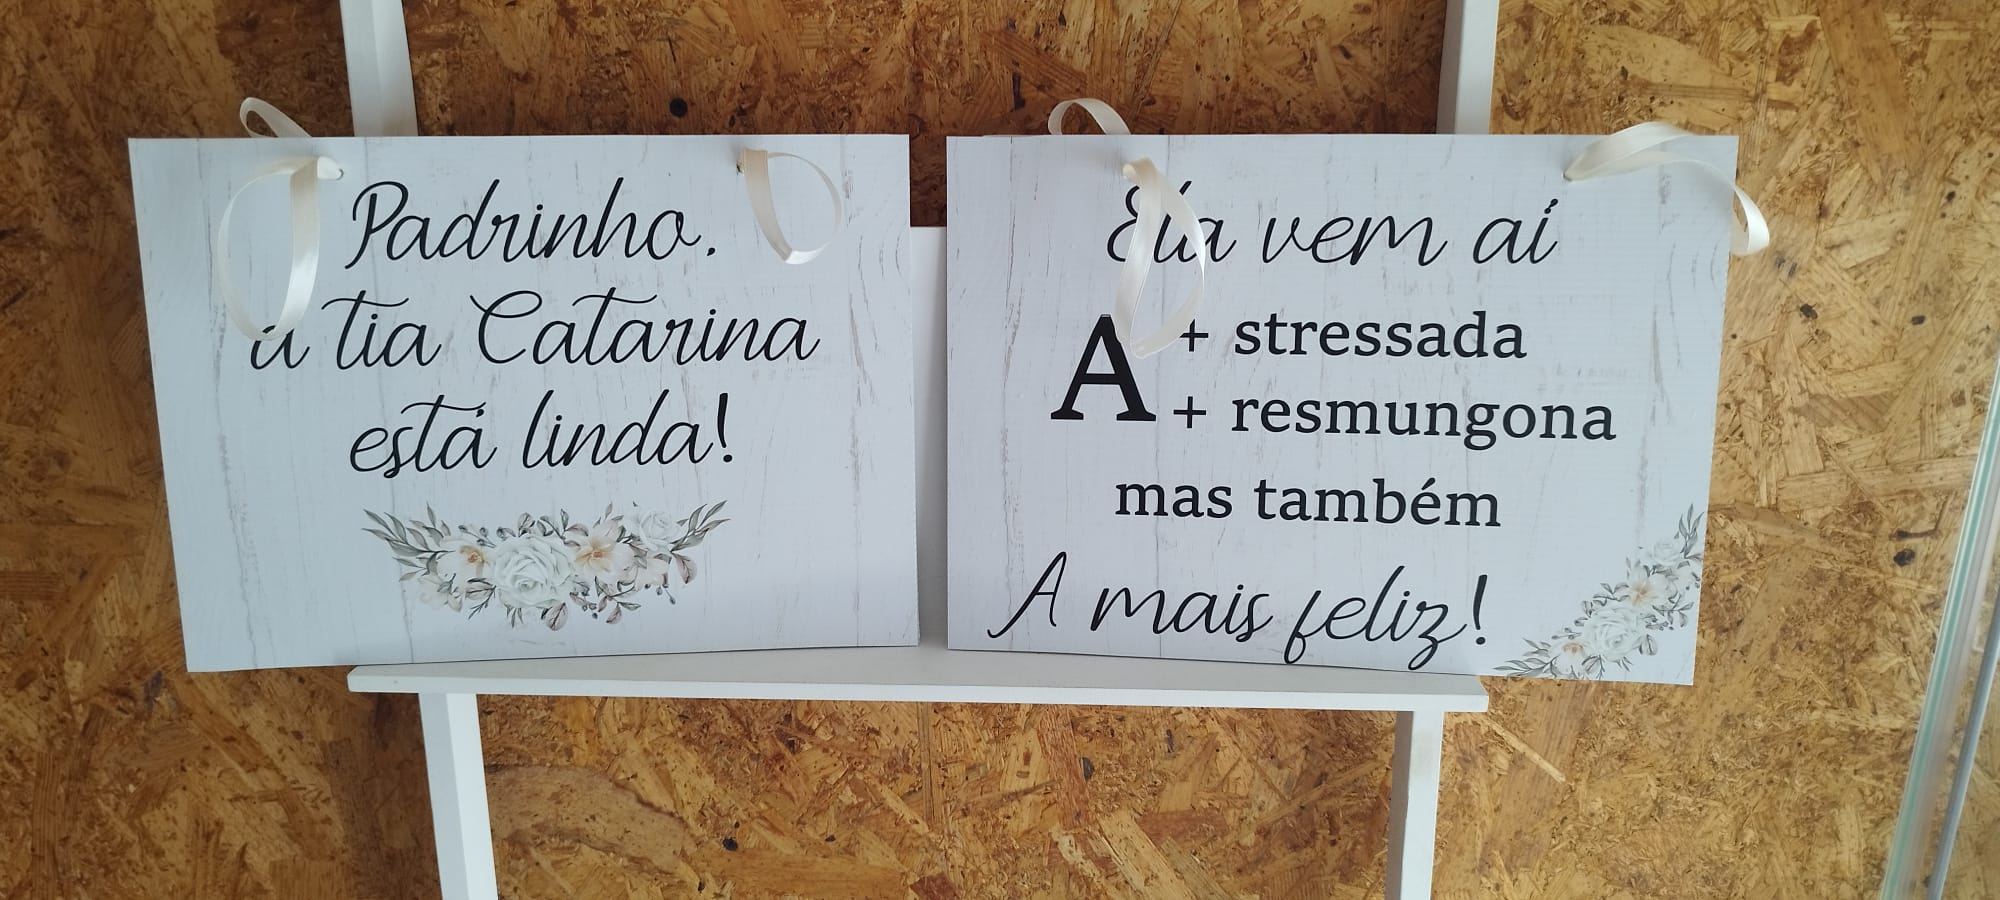 Padrinho.
a tia Catarina
está linda!
Ela vem aí
A + stressada
+ resmungona
mas também
A mais feliz!